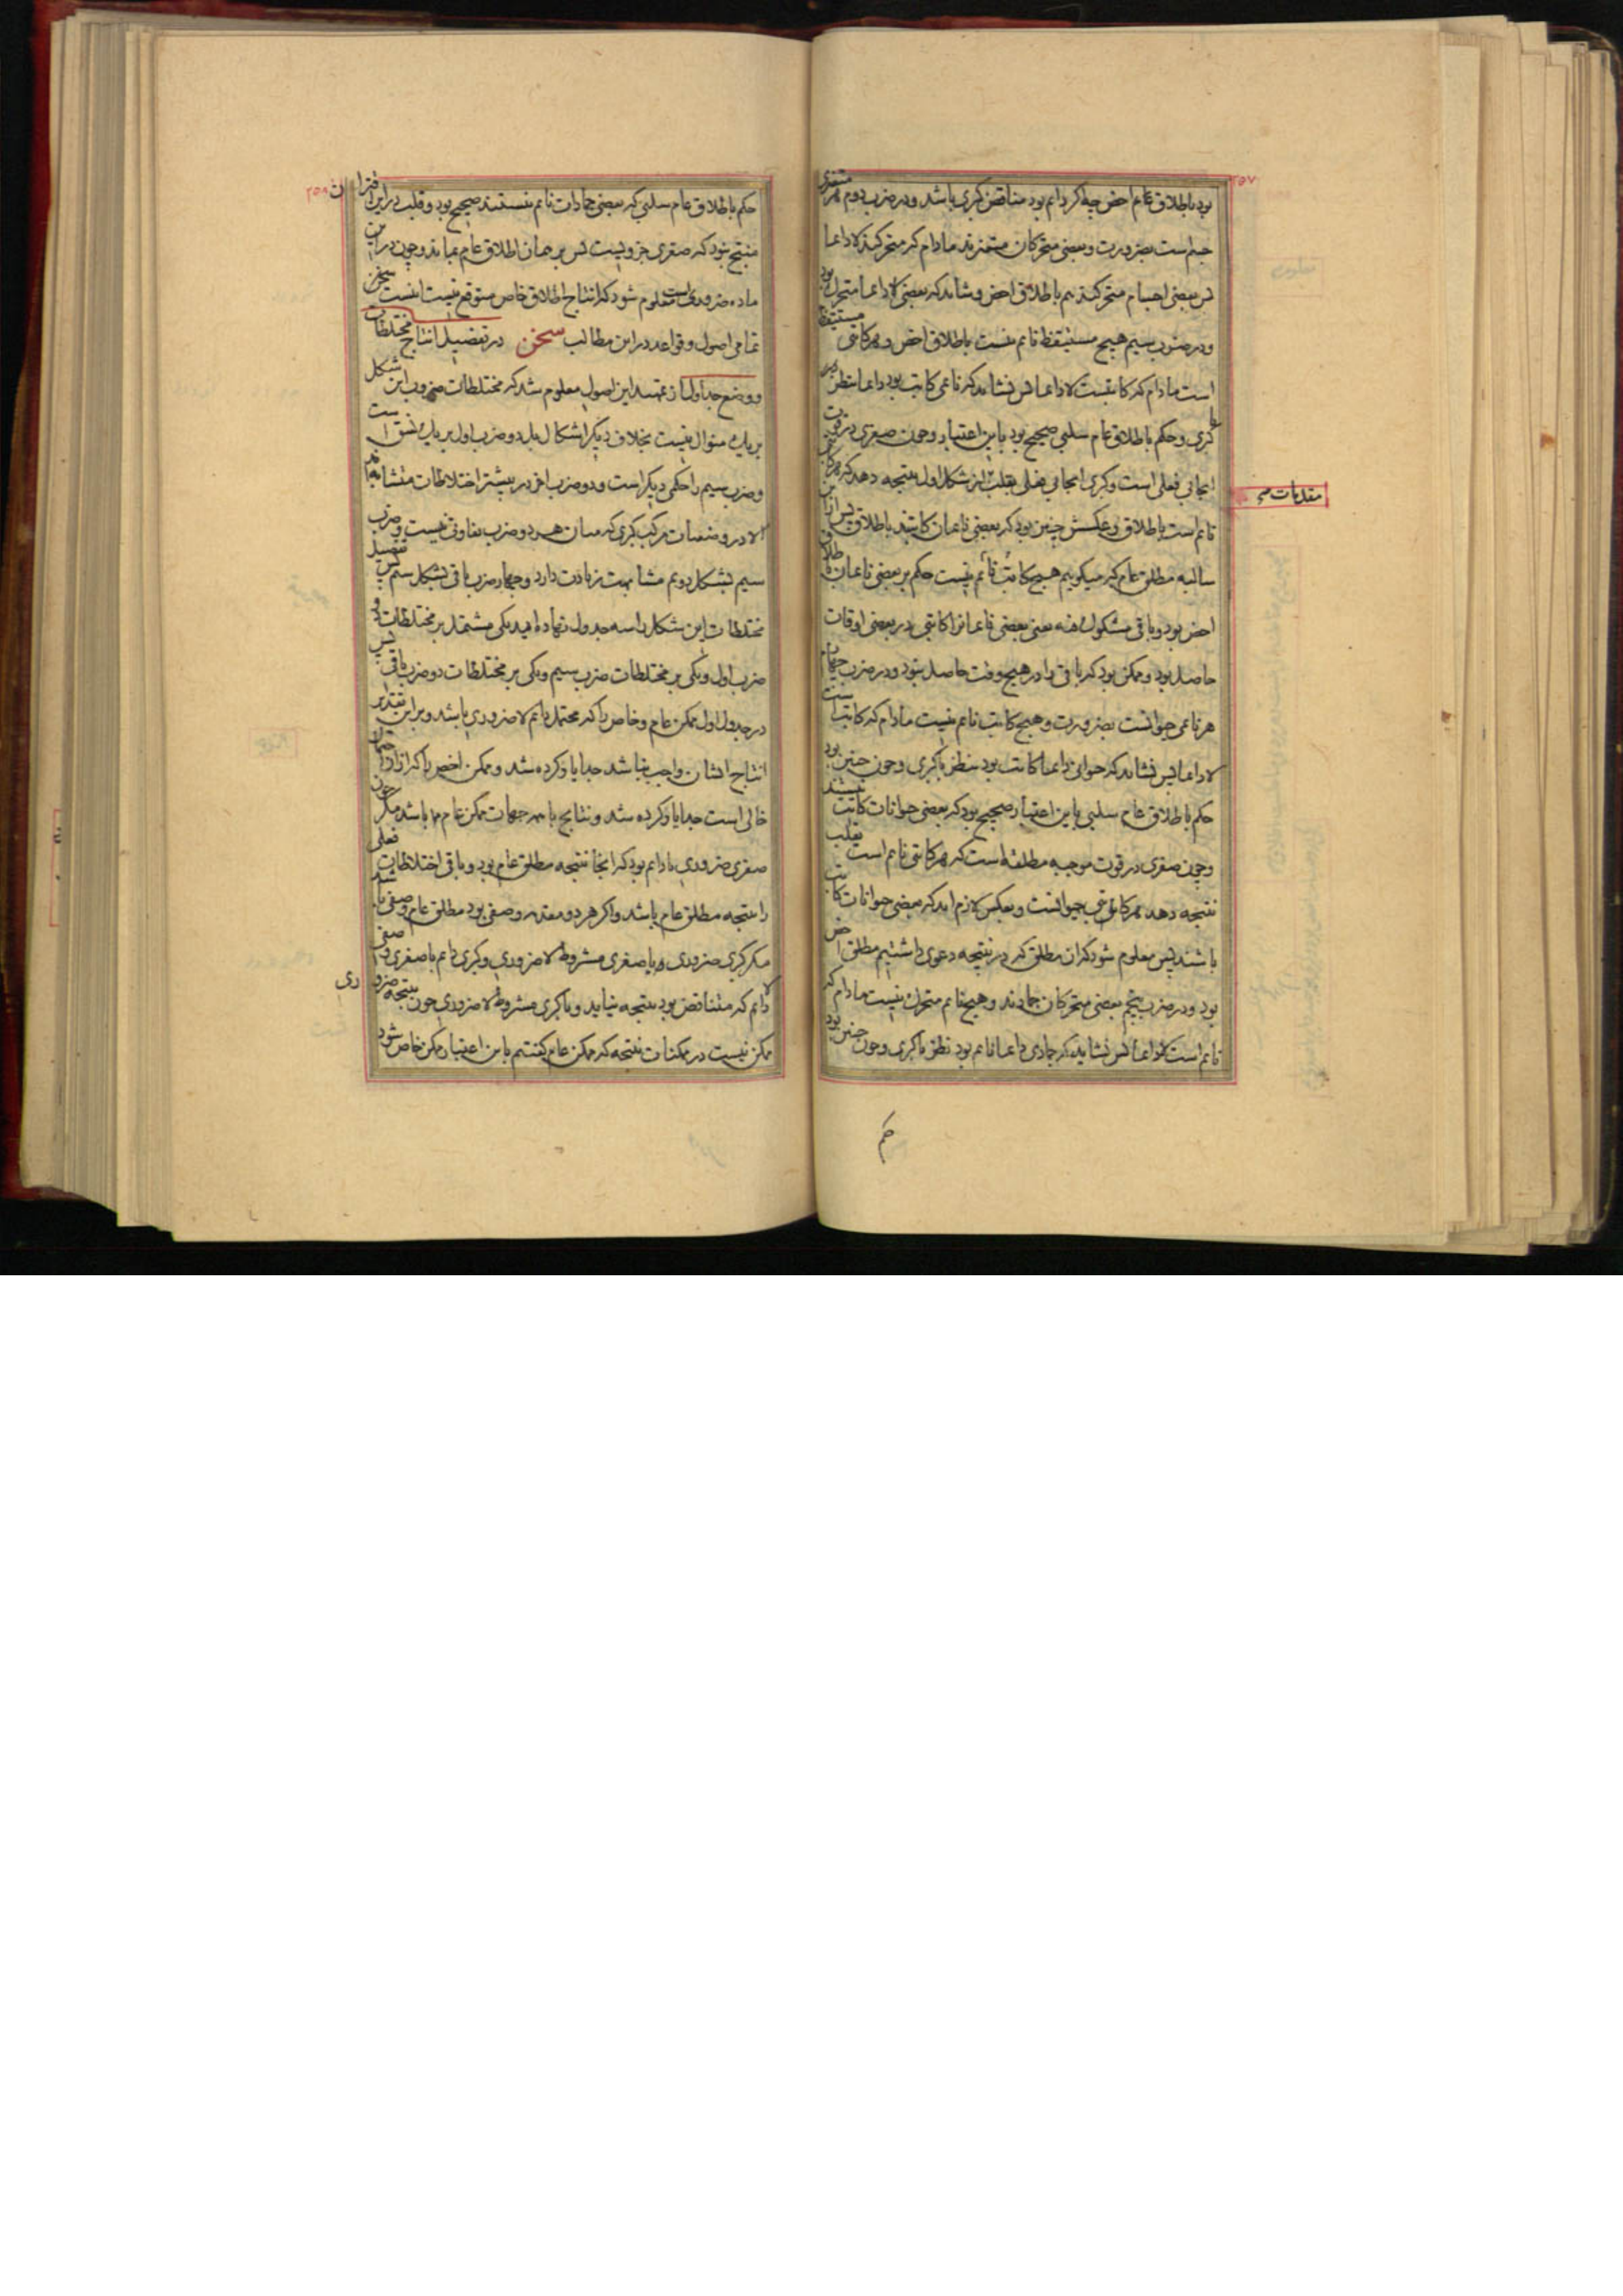 ۲۵۷
بود باطلاق عام اخص چه اکر دائم بود مناقض کبری باشد و در ضرب دوم هر متغیری
جسم است بضرورت و بعضی متحرکان متغیرند مادام که متحرکند لا دائما
پس بعضی اجسام متحرکند هم باطلاق اخص و شاید که بعضی لا دائما متحرک بود
و در ضرب سیم هیچ مستیقظ نائم نیست باطلاق اخص و هر کاتبی مستیقظ
است مادام که کاتبست لا دائما پس نشاید که نائمی کاتب بود دائما بنظر در
کبری و حکم باطلاق عام سلبی صحیح بود باین اعتبار و چون صغری در قوت
ایجابی فعلی است و کبری ایجابی فعلی بقلب از شکل اول نتیجه دهد که هر کاتبی
نائم است باطلاق و عکسش چنین بود که بعضی نائمان کاتبند باطلاق پس از این
سالبه مطلق عام که میکوییم هیچ کاتب نائم نیست حکم بر بعضی نائمان باطلاق
اخص بود و باقی مشکوک فیه یعنی بعضی نائمانرا کاتبی در بعضی اوقات
حاصل بود و ممکن بود که باقی را در هیچ وقت حاصل نبود و در ضرب چهارم
هر نائمی حیوانست بضرورت و هیچ کاتب نائم نیست مادام که کاتبست
لا دائما پس نشاید که حیوانی دائما کاتب بود بنظر با کبری و چون چنین بود
حکم باطلاق عام سلبی باین اعتبار صحیح بود که بعضی حیوانات کاتب نیستند
و چون صغری در قوت موجبه مطلقه است که هر کاتبی نائم است بقلب
نتیجه دهد هر کاتبی حیوانست و بعکس لازم اید که بعضی حیوانات کاتب
باشند پس معلوم شود که ان مطلق که در نتیجه دعوی داشتیم مطلق اخص
بود و در ضرب پنجم بعضی متحرکان جمادند و هیچ نائم متحرک نیست مادام که
نائم است لا دائما پس نشاید که جمادی دائما نائم بود نظر با کبری و چون چنین بود
مقدمات
حکم
۲۵۸
حکم باطلاق عام سلبی که بعضی جمادات نائم نیستند صحیح بود و قلب در این اقتران
منتج نبود که صغری جزویست پس بر همان اطلاق عام بماند و چون در این
ماده ضروری است معلوم شود که انتاج اطلاق خاص متوقع نیست اینست سخن
تمامی اصول و قواعد در این مطالب سخن در تفصیل انتاج مختلطات
و وضع جداول از تمهید این اصول معلوم شد که مختلطات ضروب این شکل
بر یک منوال نیست بخلاف دیکر اشکال بل دو ضرب اول بر یک نسق است
و ضرب سیم را حکمی دیکر است و دو ضرب اخر در بیشتر اختلاطات متشابه اند
الا در وصفیات مرکب کبری که میان هر دو ضرب تفاوتی نیست و ضرب
سیم بشکل دویم مشابهت زیادت دارد و چهار ضرب باقی بشکل سیم پس تفصیل
مختلطات این شکل را سه جدول نهاده امد یکی مشتمل بر مختلطات دو
ضرب اول و یکی بر مختلطات ضرب سیم و یکی بر مختلطات دو ضرب باقی پس
در جدول اول ممکن عام و خاص را که محتمل دائم لا ضروری باشد و بر این تقدیر
انتاج ایشان واجب نباشد جدا یاد کرده شد و ممکن اخص را که از ان احتمال
خالی است جدا یاد کرده شد و نتایج با همه جهات ممکن عام باشد مکر چون
صغری ضروری یا دائم بود که انجا نتیجه مطلق عام بود و باقی اختلاطات فعلی
را نتیجه مطلق عام باشد و اکر هر دو مقدمه وصفی بود مطلق عام وصفی باشد
مکر کبری ضروری و یا صغری مشروط لا ضروری و کبری دائم با صغری وصفی
لا دائم که متناقض بود نتیجه نیاید و با کبری مشروط لا ضروری چون نتیجه ضروری
ممکن نیست در ممکنات نتیجه که ممکن عام کفتیم باین اعتبار ممکن خاص شود